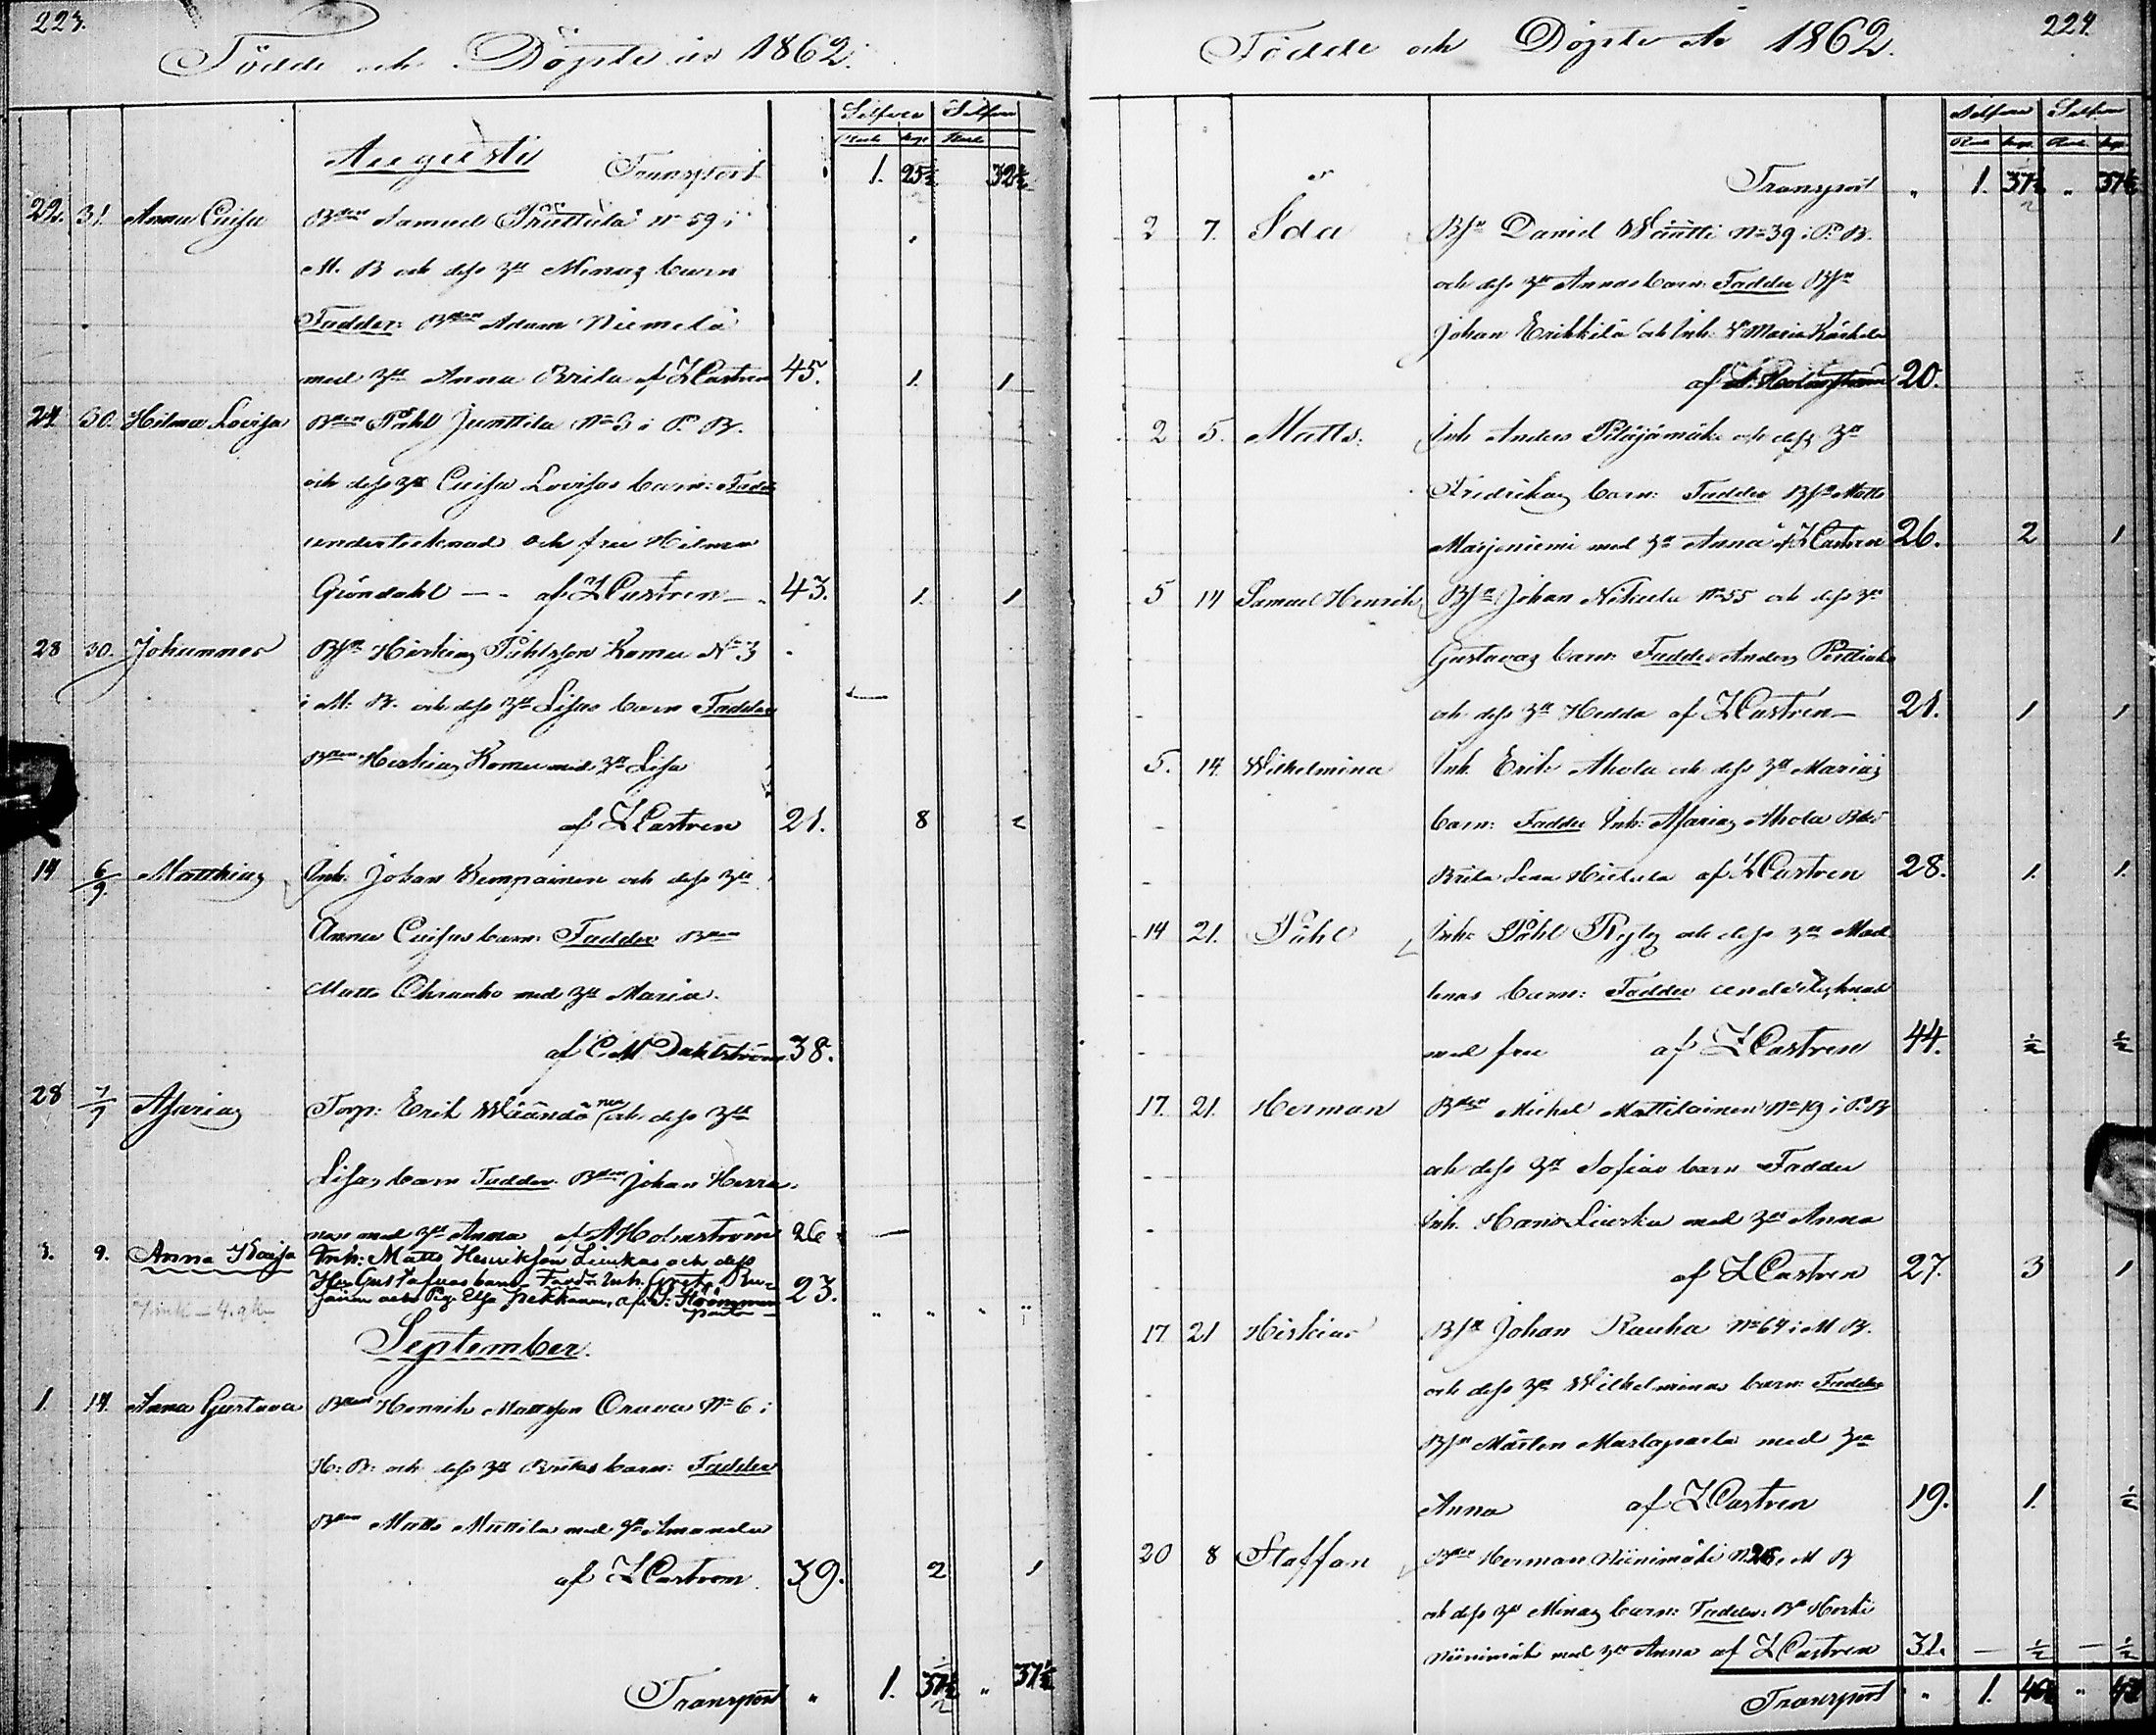 223.
Födde och Döpte år 1862.
Silfver Silfver
Augusti Transport 1. 25½ 32½
22. 31. Anna Caisa Bden Samuel Truttula No 59 i
M. B och dess hu Minas barn
Fadder: Bden Adam Niemelä
med hu Anna Brita af Z Castren 45. 1. 1
24 30. Hilma Lovisa Bden Påhl Junttila No 3 i P. B.
och dess hu Caisa Lovisas barn: Fadd
undertecknad och fru Hilma
Gröndahl — af Z Castren 43. 1. 1
28 30. Johannes Bsn Hiskias Påhlsson Komu No 3
i M. B. och dess hu Lisas barn Fadder
Bden Hiskias Komu med hu Lisa
af Z Castren 21. 8 2
14 6/9. Matthias Inh. Johan Kemppainen och dess hu
Anna Caisas barn: Fadder Bden
Matts Ohranko med hu Maria.
af C. M Dahlström 38.
28 7/9 Asarias Torp: Erik Wäänänen och dess hu
Lisas barn Fadder. Bden Johan Herra-
nen med hu Anna af A Holmström 26
3. 9. Anna Kaisa Inh: Matts Henriksson Liukas och dess
Hu Gustafvas barn. Fadd: Inh. Gust.
och Pig. Elsa Pekkanen, af S. 23.
September.
1. 14. Anna Gustava Bden Henrik Mattsson Orava No 6 i
H: B: och dess hu Britas barn: Fadder
Bden Matts Mattila med hu Amanda
af Z Castren 39. 2 1
Transport " 1. 37½ " 37½
224.
Födde och Döpte År 1862.
Silfver Silfver
Transport " 1. 37½ " 37½
2 7. Ida Bsn Daniel Wäntti No 39 i P. B.
och dess hu Annas barn: Fadder Bsn
Johan Erikkilä och Inh: Maria
af A. Holmström 20.
2 5. Matts. Inh Anders Pitäjämäki och dess hu
Fredrikas barn: Fadder Bsn Matts
Marjeniemi med hu Anna af Z Castren 26. 2 1
5 14 Samuel Henrik Bsn Johan Nikula No 55 och dess hu
Gustavas barn: Fadder Anders
och dess hu Hedda af Z Castren 21. 1 1
5. 14. Wilhelmina Inh. Erik Ahola och dess hu Marias
barn: Fadder Inh: Asarias Ahola
Brita Lena Hietala af Z Castren 28. 1. 1.
14 21. Påhl Inh: Påhl och dess hu Mad
lenas barn: Fadder undertecknad
med fru af Z Castren 44. ½ ½
17. 21. Herman Bden Michel Mattilainen No 19 i P. B
och dess hu Sofias barn Fadder
Inh. Hans med hu Anna
af Z Castren 27. 3 1
17. 21 Hiskias Bsn Johan Rauha No 64 i M B.
och dess hu Wilhelminas barn: Fadder
Bsn Mårten Mustapaita med hu
Anna af Z Castren 19. 1. ½
20 8 Staffan Bden Herman Niinimäki i M B
och dess hu Minas barn: Fadder: B
Niinimäki med hu Anna af Z Castren 31. — ½ — ½
Transport " 1.